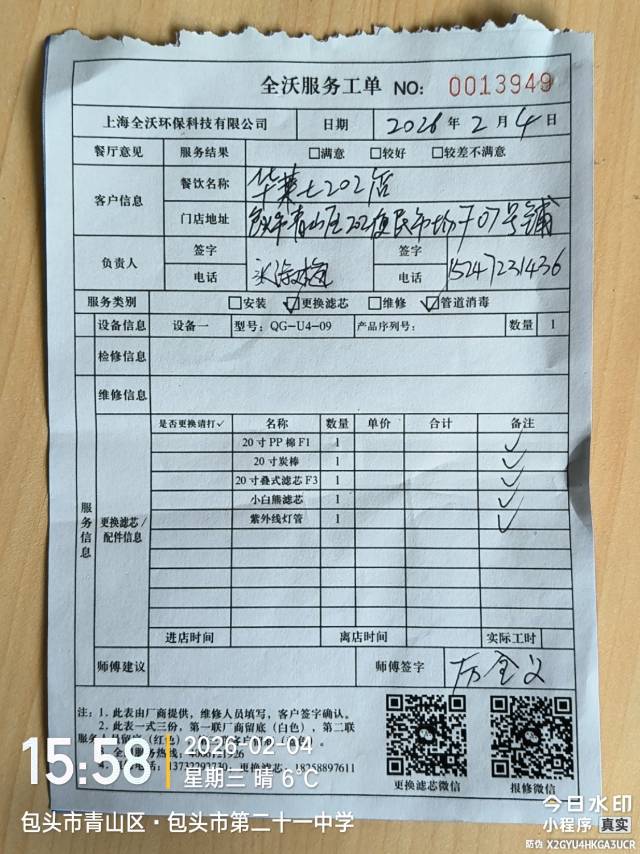 全沃服务工单 NO: 0013949
上海全沃环保科技有限公司 日期 2026年2月4日
餐厅意见 服务结果 □满意 □较好 □较差不满意
客户信息 餐饮名称 华莱士202店
门店地址 包头市青山区202便民市场707号铺
负责人 签字 签字
电话 电话 15247231436
服务类别 □安装 ☑更换滤芯 □维修 ☑管道消毒
设备信息 设备一 型号: QG-U4-09 产品序列号: 数量 1
检修信息
维修信息
服务信息
更换滤芯/配件信息
是否更换请打✓ 名称 数量 单价 合计 备注
20寸PP棉F1 1 ✓
20寸炭棒 1 ✓
20寸叠式滤芯F3 1 ✓
小白熊滤芯 1 ✓
紫外线灯管 1 ✓
进店时间 离店时间 实际工时
师傅建议 师傅签字
注: 1. 此表由厂商提供, 维修人员填写, 客户签字确认。
2. 此表一式三份, 第一联厂商留底(白色), 第二联
服务人员留底(红色)
更换滤芯: 18258897611
更换滤芯微信 报修微信
15:58 2026-02-04
星期三 晴 6°C
包头市青山区·包头市第二十一中学
今日水印
小程序 真实
防伪 X2GYU4HKGA3UCR